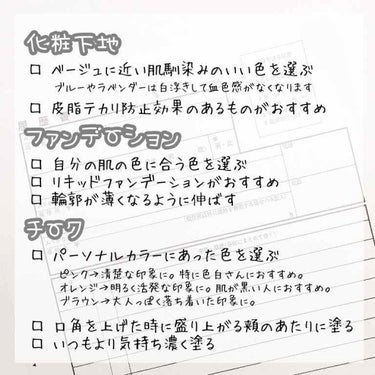 化粧下地
□ ベージュに近い肌馴染みのいい色を選ぶ
ブルーやラベンダーは白浮きして血色感がなくなります
□ 皮脂テカリ防止効果のあるものがおすすめ
ファンデーション
□ 自分の肌の色に合う色を選ぶ
□ リキッドファンデーションがおすすめ
□ 輪郭が薄くなるように伸ばす
チーク
□ パーソナルカラーにあった色を選ぶ
ピンク→清楚な印象に。特に色白さんにおすすめ。
オレンジ→明るく活発な印象に。肌が黒い人におすすめ。
ブラウン→大人っぽく落ち着いた印象に。
□ 口角を上げた時に盛り上がる頬のあたりに塗る
□ いつもより気持ち濃く塗る